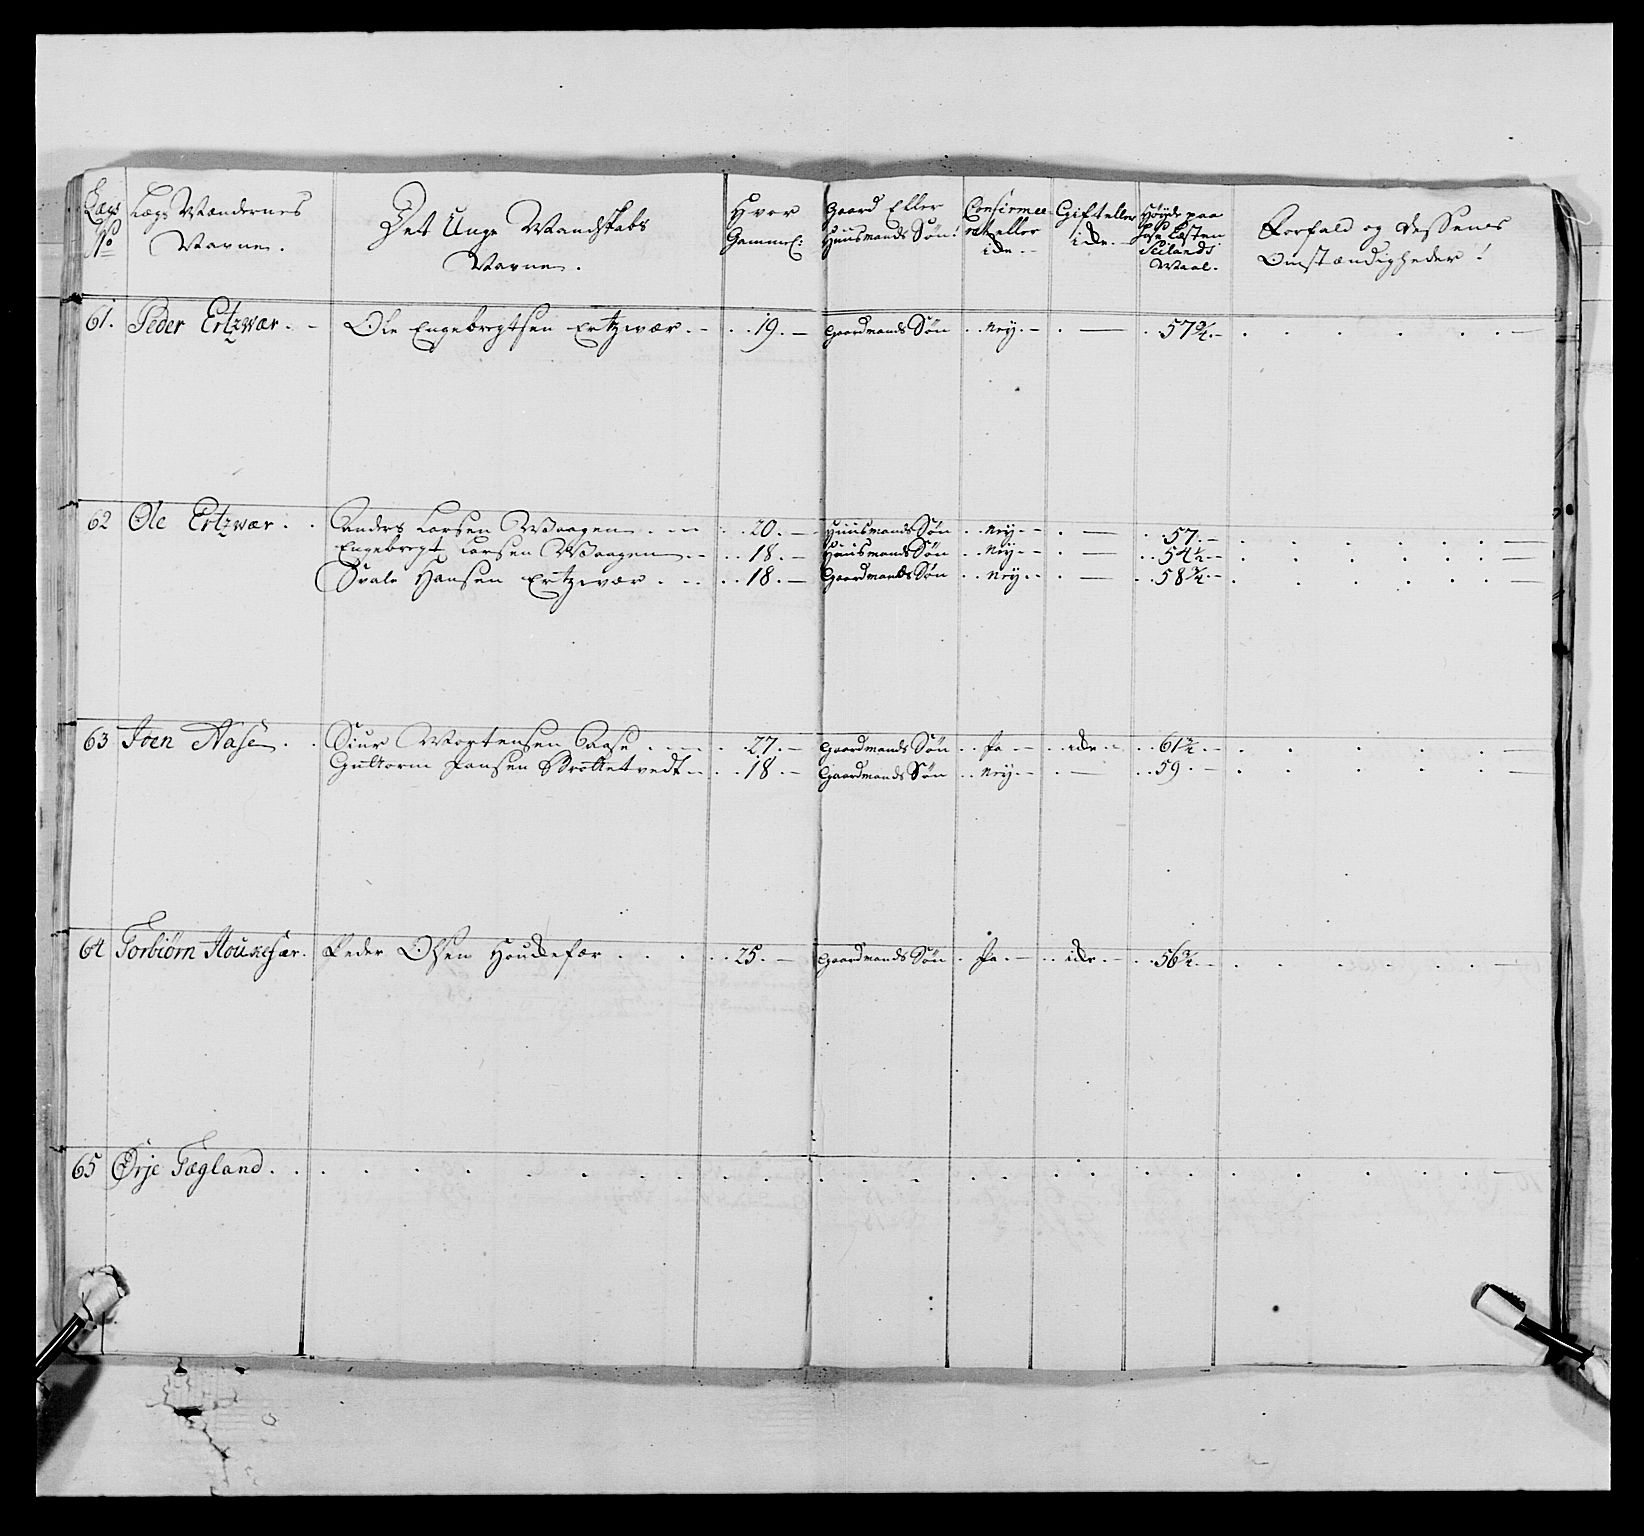 Lægs No
Lægs Mændernes Navne.
Det Unge Mandskabs Navne.
Hvor Gammel:
Gaard Eller Huusmands Søn!
Confirmeeret eller icke.
Gift eller icke.
Høyde paa Seelands Maal.
Forfald og dessens Omstændigheder!
61. Peder Ertzwær. Ole Engebregtsen Ertzwær. 19. Gaardmands Søn Ney. — 57¾.
62 Ole Ertzwær. Anders Larsen Waagen. 20. Huusmands Søn Ney. — 57.
Engebregt Larsen Waagen. 18. Huusmands Søn Ney. — 54½.
Svale Hansen Ertzwær. 18. Gaardmands Søn Ney. — 58¾.
63 Joen Aase. Siur Mortensen Aase. 27. Gaardmands Søn Ja. icke. 61¾.
Guttorm Jansen 18. Gaardmands Søn Ney. — 59.
64 Torbiørn Houkefær. Peder Olsen Houckefær. 25. Gaardmands Søn Ja. icke. 56¾.
65 Ørje Fægland.